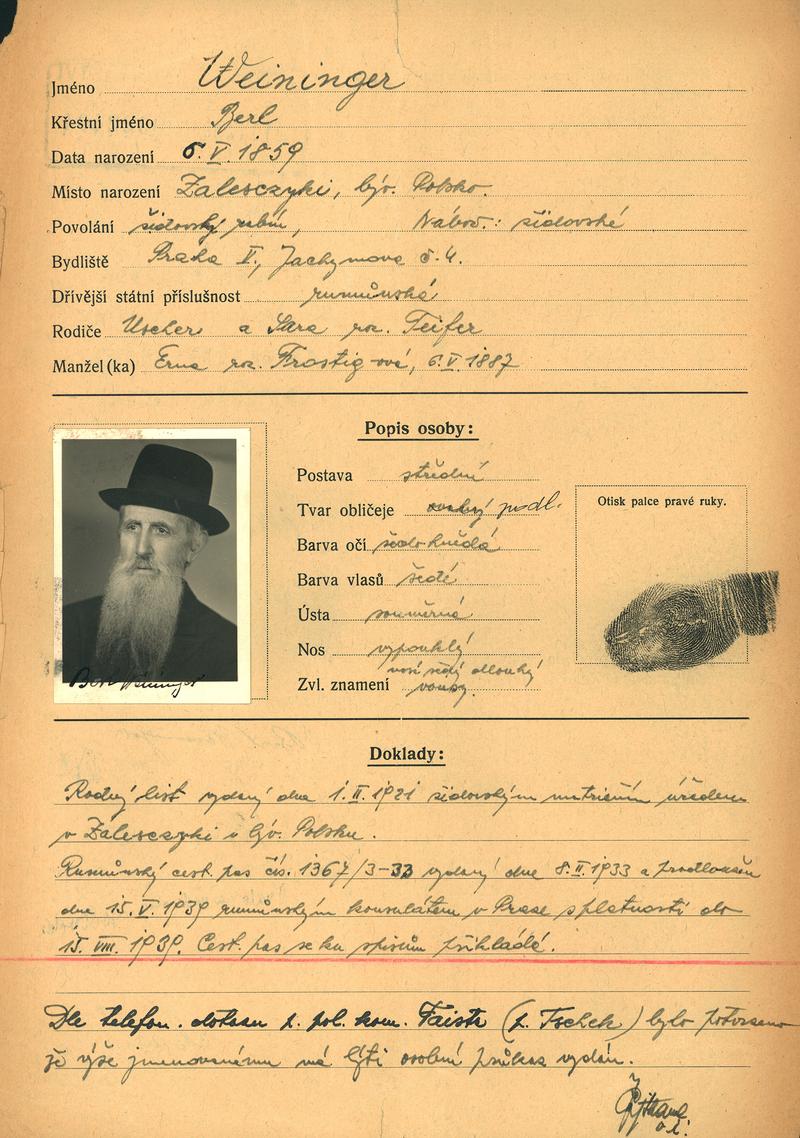 Jméno Weininger
Křestní jméno Berl
Data narození 6.V.1859
Místo narození Zalesczyki, býv. Polsko.
Povolání židovský rabín, Nábož.: židovské
Bydliště Praha V., Jachymova č.4.
Dřívější státní příslušnost rumůnská
Rodiče Uscher a Sara roz. Teifer
Manžel(ka) Erna roz. Frostig-ová, 6.V.1887
Popis osoby:
Postava střední
Tvar obličeje podl.
Otisk palce pravé ruky.
Barva očí šedohnědá
Barva vlasů šedé
Ústa souměrná
Nos vypouklý
Zvl. znamení nosí šedý dlouhý
vousy.
Berl Weininger
Doklady:
Rodný list vydaný dne 1.II.1921 židovským matričním úřadem
v Zalesczyki v býv. Polsku.
Rumůnský cest. pas čís. 1367/3-33 vydaný dne 8.II.1933 a prodloužen
dne 15.V.1939 rumůnským konsulátem v Praze s platností do
15.VIII.1939. Cest. pas se ku spisům přikládá.
Dle telefon. dotazu p. pol. kom. Faistr (p. Tschek) bylo potvrzeno
že výše jmenovanému má býti osobní průkaz vydán.